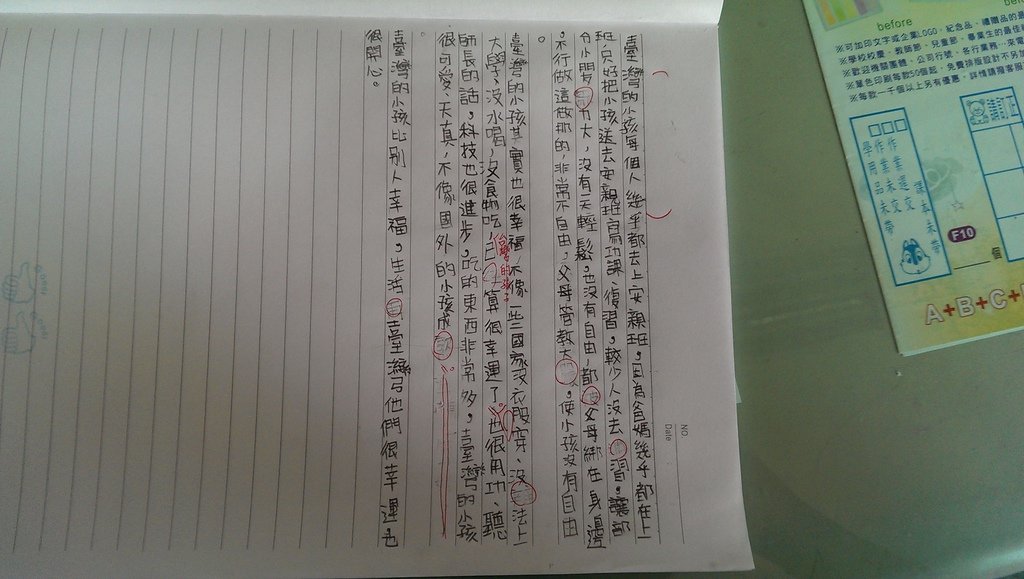 臺灣的小孩每個人幾乎都去上安親班,因為爸媽幾乎都在上
班,只好把小孩送去安親班寫功課、復習,較少人沒去習。讓部
分小朋友力大,沒有一天輕鬆,也沒有自由,都父母綁在身邊
,不行做這做那的,非常不自由,父母管教太,使小孩沒有自由
。
臺灣的小孩其實也很幸福,不像一些國家沒衣服穿、沒法上
大學、沒水喝、沒食物吃,算很幸運了,也很用功、聽
台灣的孩子
師長的話,科技也很進步,吃的東西非常多,臺灣的小孩
很可愛、天真,不像國外的小孩成
臺灣的小孩比別人幸福,生活臺灣他們很幸運也
很開心。
NO.
Date
Good
before
※可加印文字或企業LOGO,紀念品、禮贈品的最
※學校校慶、教師節、兒童節、畢業生的最佳
※歡迎機關團體、公司行號、各行業務…來電
※單色印刷每款50個起,免費排版設計不另加
※每款一千個以上另有優惠,詳情請撥客服
作業未交
作業遲交
課本未帶
學用品未帶
訂正
F10
個
A+B+C+